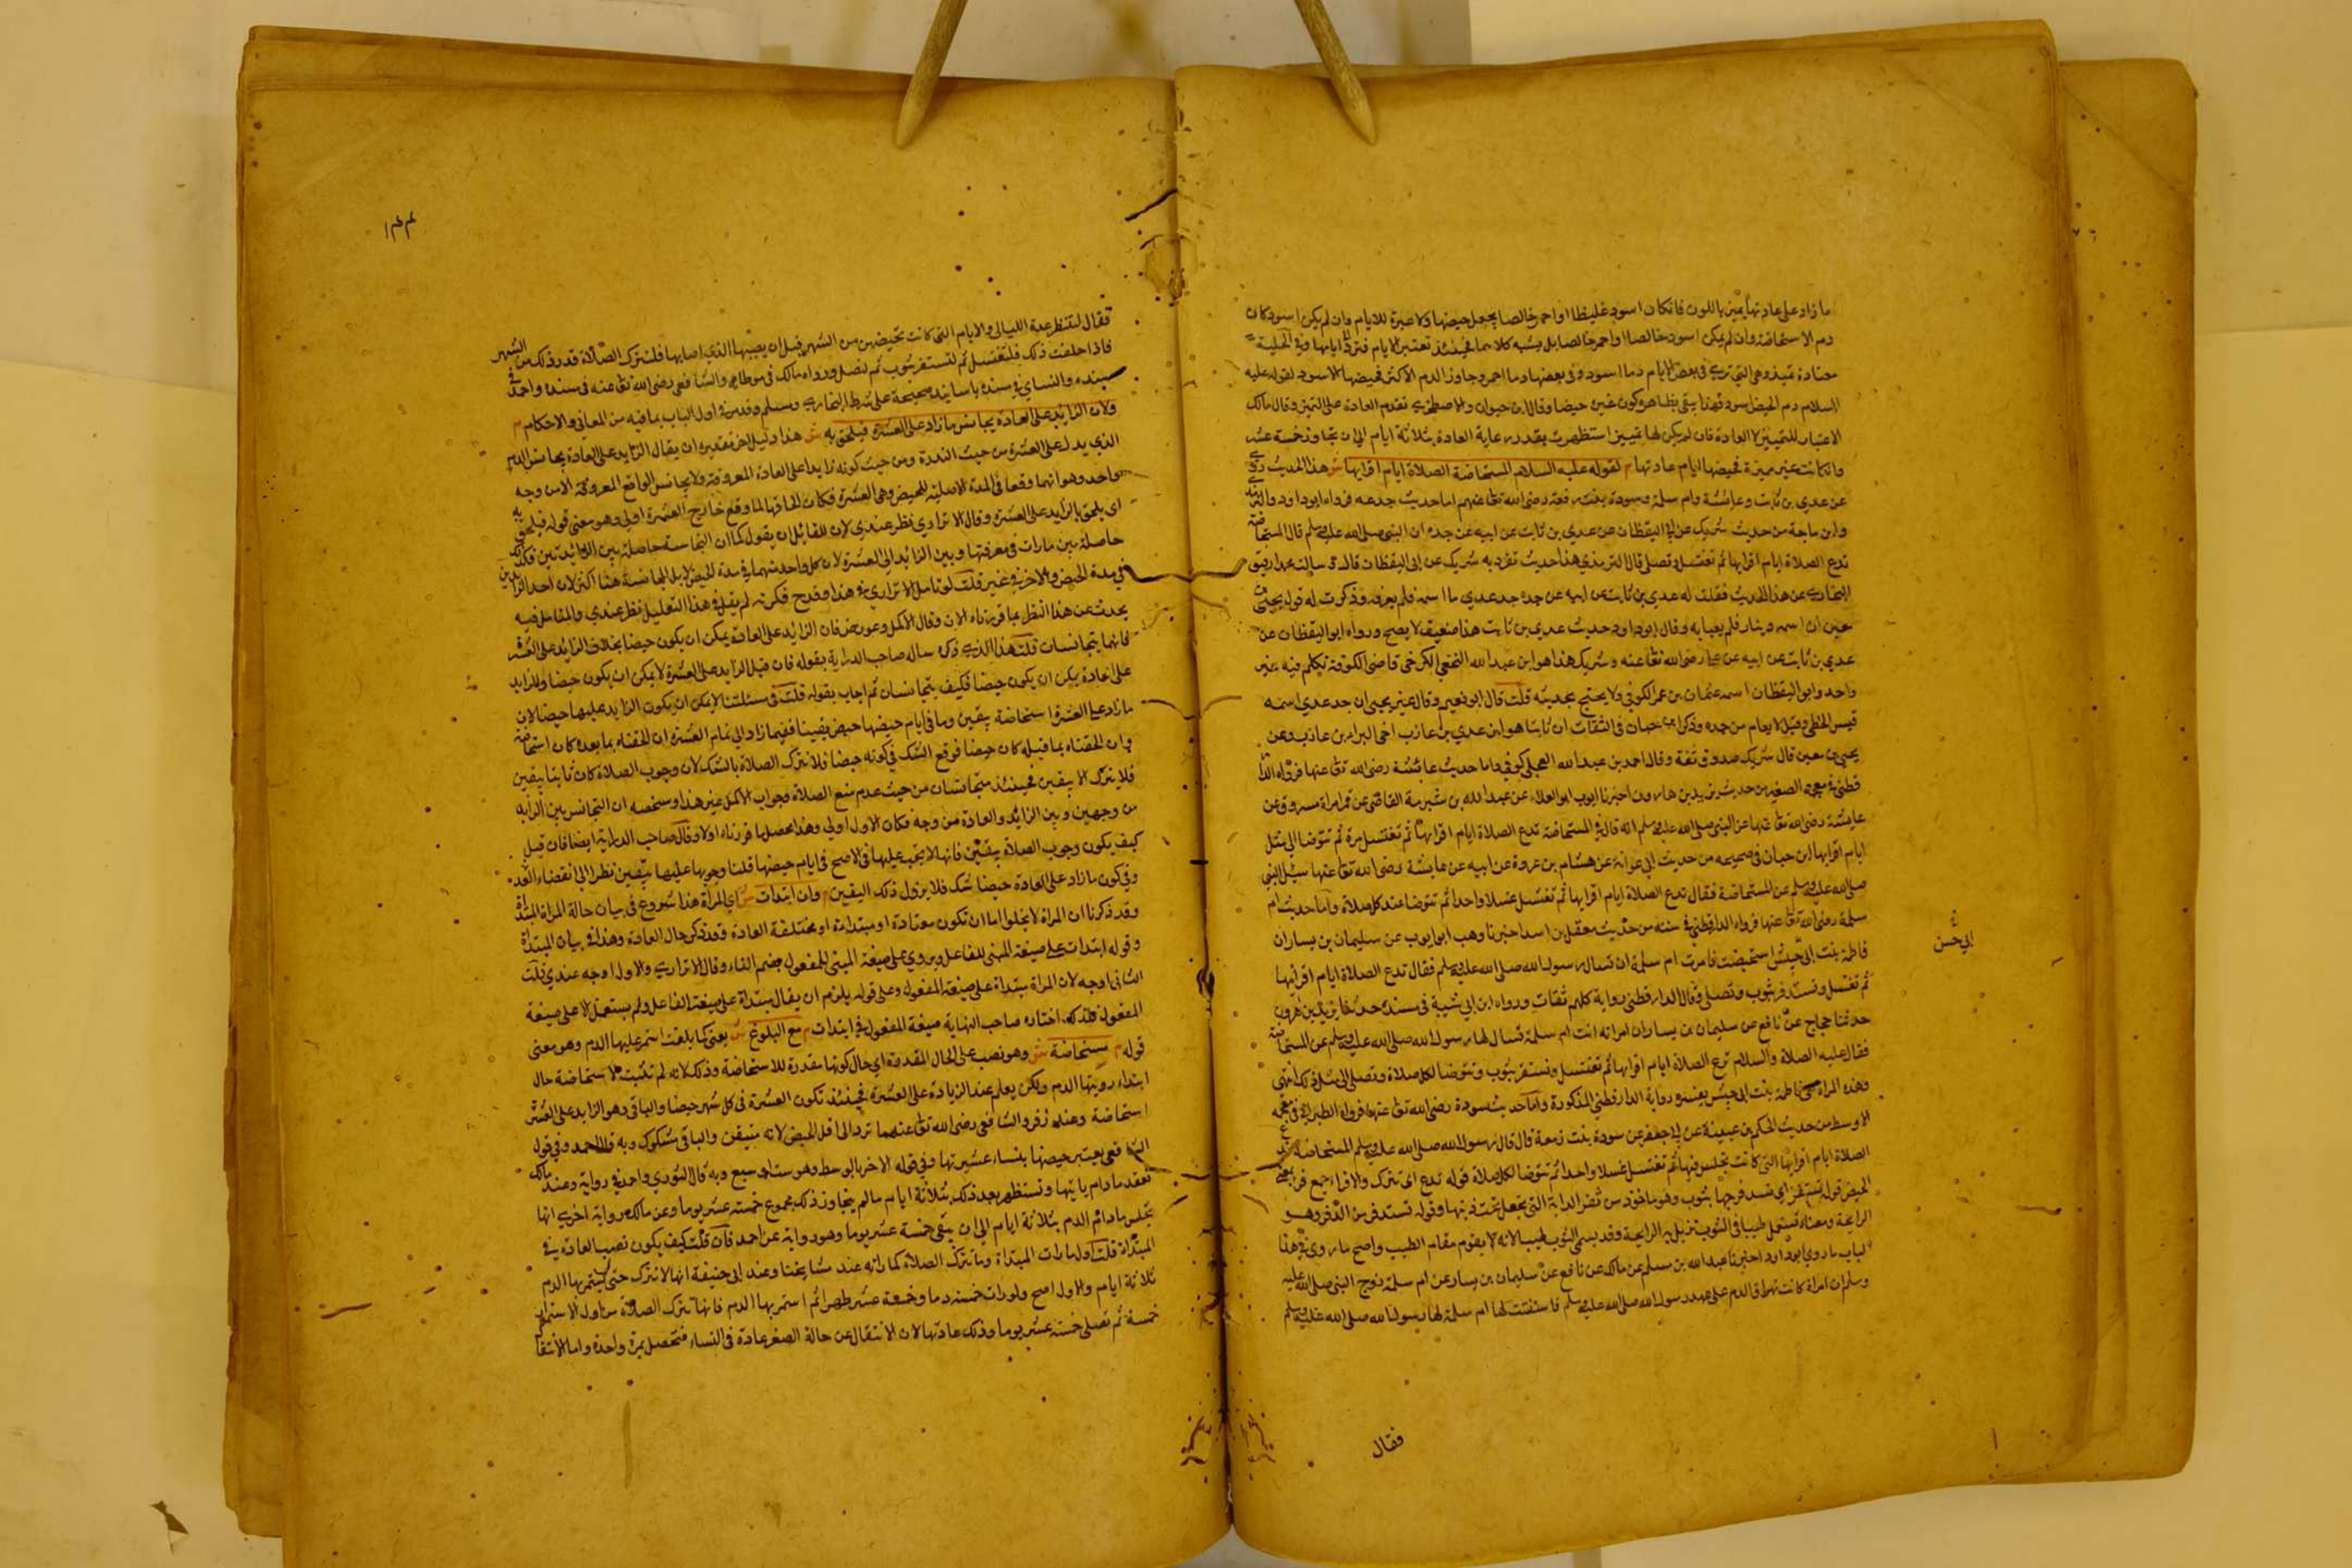 ما زاد على عادتها يميز باللون فان كان اسود غليظا او احمر خالصا يجعل حيضها ولا عبرة للايام وان لم يكن اسود كان
دم الاستحاضة وان لم يكن اسود خالصا او احمر خالصا بل يشبه كلاهما فحينئذ تعتبر الايام فترد الى ايامها وفي الحلية
معتادة مميزة وهي التي ترى في بعض الايام دما اسود وفي بعضها دما احمر وجاوز الدم الاكثر فحيضها الاسود لقوله عليه
السلام دم الحيض اسود فهذا ينفي بظاهره كون غيره حيضا وقال ابن خيران والاصطخري تقدم العادة على التميز وقال مالك
الاعتبار للتمييز لا العادة فان لم يكن لها تمييز استظهرت بقدر رعاية العادة بثلاثة ايام الى ان تجاوز خمسة عشر
وان كانت غير مميزة فحيضها ايام عادتها م لقوله عليه السلام المستحاضة الصلاة ايام اقرائها ش هذا الحديث روي
عن عدي بن ثابت وعائشة وام سلمة وسودة بنت زمعة رضي الله تعا عنهم اما حديث جد عدي فرواه ابو داود والترمذي
وابن ماجة من حديث شريك عن ابي اليقظان عن عدي بن ثابت عن ابيه عن جده ان النبي صلى الله عليه وسلم قال المستحاضة
تدع الصلاة ايام اقرائها ثم تغتسل وتصلي قال الترمذي هذا حديث تفرد به شريك عن ابي اليقظان قال وسالت محمدا يعني
البخاري عن هذا الحديث فقلت له عدي بن ثابت عن ابيه عن جده جد عدي ما اسمه فلم يعرفه وذكرت له قول يحيى بن
معين ان اسمه دينار فلم يعبا به وقال ابو داود حديث عدي بن ثابت هذا ضعيف لا يصح ورواه ابو اليقظان عن
عدي بن ثابت عن ابيه عن علي رضي الله تعا عنه وشريك هذا هو ابن عبد الله النخعي الكرخي قاضي الكوفة تكلم فيه غير
واحد وابو اليقظان اسمه عثمان بن عمر الكوفي ولا يحتج بحديثه قلت قال ابو نعيم وقال غير يحيى ان جد عدي اسمه
قيس الخطمي وقيل لا يعلم من جده وذكر ابن حبان في الثقات ان ثابتا هو ابن عدي بن عازب اخي البراء بن عازب وعن
يحيى بن معين قال شريك صدوق ثقة وقال احمد بن عبد الله العجلي كوفي واما حديث عائشة رضي الله تعا عنها فرواه الدا
قطني في معجمه الصغير من حديث يزيد بن هارون اخبرنا ايوب ابو العلاء عن عبد الله بن شبرمة القاضي عن قمير امراة مسروق عن
عايشة رضي الله تعا عنها عن النبي صلى الله عليه وسلم انه قال في المستحاضة تدع الصلاة ايام اقرائها ثم تغتسل مرة ثم تتوضا الى مثل
ايام اقرائها ابن حبان في صحيحه من حديث ابي عوانة عن هشام بن عروة عن ابيه عن عايشة رضي الله تعا عنها سئل النبي
صلى الله عليه وسلم عن المستحاضة فقال تدع الصلاة ايام اقرائها ثم تغتسل غسلا واحدا ثم تتوضا عند كل صلاة واما حديث ام
سلمة رضي الله تعا عنها فرواه الدارقطني في سننه من حديث معقل بن اسد اخبرنا وهب ابو ايوب عن سليمان بن يسار ان
فاطمة بنت ابي حبيش استحيضت فامرت ام سلمة ان تسال رسول الله صلى الله عليه وسلم فقال تدع الصلاة ايام اقرائها
ثم تغتسل وتستذفر بثوب وتصلي وقال الدارقطني رواية كلهم ثقات ورواه ابن ابي شيبة في مسنده حدثنا يزيد بن هرون
حدثنا حجاج عن نافع عن سليمان بن يسار ان امراته اتت ام سلمة تسال لها رسول الله صلى الله عليه وسلم عن المستحاضة
فقال عليه الصلاة والسلام تدع الصلاة ايام اقرائها ثم تغتسل وتستثفر بثوب وتتوضا لكل صلاة وتصلي الى مثل ذلك انتهى
وهذه المراة هي فاطمة بنت ابي حبيش يفسره رواية الدارقطني المذكورة واما حديث سودة رضي الله تعا عنها فرواه الطبراني في معجمه
الاوسط من حديث الحكم بن عيينة عن ابي جعفر عن سودة بنت زمعة قال قال رسول الله صلى الله عليه وسلم المستحاضة تدع
الصلاة ايام اقرائها التي كانت تجلس فيها ثم تغتسل غسلا واحدا ثم تتوضا لكل صلاة قوله تدع اي تترك والاقراء جمع قرء بمعنى
الحيض قوله تستثفر اي تسد فرجها بثوب وهو ماخوذ من ثفر الدابة التي تجعل تحت ذنبها وقوله تستذفر من الذفر وهو
الرايحة ومعناه تستعمل طيبا في الثوب تزيل به الرايحة وقد يسمى الثوب طيبا لانه يقوم مقام الطيب واصح ما روي في هذا
الباب ما روي ابو داود اخبرنا عبد الله بن مسلم عن مالك عن نافع عن سليمان بن يسار عن ام سلمة زوج النبي صلى الله عليه
وسلم ان امراة كانت تهراق الدم على عهد رسول الله صلى الله عليه وسلم فاستفتت لها ام سلمة لها رسول الله صلى الله عليه وسلم
ابي حسن
فقال
١٤٤
فقال لتنظر عدة الليالي والايام التي كانت تحيضهن من الشهر قبل ان يصيبها الذي اصابها فلتترك الصلاة قدر ذلك من الشهر
فاذا خلفت ذلك فلتغتسل ثم لتستثفر بثوب ثم لتصل ورواه مالك في موطاه والشافعي رضي الله تعا عنه في مسنده واحمد في
مسنده والنساي في سننه باسانيد صحيحة على شرط البخاري ومسلم وقد مر في اول الباب بما فيه من المعاني والاحكام م
ولان الزايد على العادة يجانس ما زاد على العشرة فيلحق به ش هذا دليل اخر تقديره ان يقال الزايد على العادة يجانس الدم
الذي يدل على العشرة من حيث الندرة ومن حيث كونه زايدا على العادة المعروفة ولا يجانس الواقع المعروفة الا من وجه
واحد وهو انهما وقعا في المدة الاصلية للحيض وهي العشرة فكان الحاقها لما وقع خارج العشرة اولى وهو معنى قوله فيلحق به
اي يلحق بالزايد على العشرة وقال الاترازي نظر عندي لان للقائل ان يقول كما ان المجانسة حاصلة بين الزائدتين فكذلك
حاصلة بين ما رات في معرفتها وبين الزائد الى العشرة لان كل واحد منهما في مدة الحيض بل المجانسة هنا اكثر لان احد الزايدين
في مدة الحيض والاخر في غيره قلت لو تامل الاترازي في هذا وقدح فكرته لم يقل في هذا التعليل نظر عندي والمقاعل فيه
يحدث عن هذا النظر بما قررناه الان وقال الاكمل وعورض فان الزائد على العادة يمكن ان يكون حيضا بخلاف الزائد على العشر
فانهما يتجانسان قلت هذا الذي ذكره ساله صاحب الدراية بقوله فان قيل الزايد على العشرة لا يمكن ان يكون حيضا والزايد
على عادة يمكن ان يكون حيضا فكيف يتجانسان ثم اجاب بقوله قلت في مسئلتنا لا يمكن ان يكون الزايد عليها حيضا لان
ما زاد على العشرة استحاضة بيقين وما في ايام حيضها حيض يقينا ففيما زاد الى تمام العشرة ان الحقناه بما بعده كان استحاضة
وان الحقناه بما قبله كان حيضا فوقع الشك في كونه حيضا فلا تترك الصلاة بالشك لان وجوب الصلاة كان ثابتا بيقين
فلا يترك الا بيقين فحينئذ متجانسان من حيث عدم منع الصلاة وجواب الاكمل غير هذا وملخصه ان التجانس بين الزايد
من وجهين وبين الزائد والعادة من وجه فكان الاول اولى وهذا يحصل بما قررناه اولا وقال صاحب الدراية ايضا فان قيل
كيف يكون وجوب الصلاة بيقين فانها لا تجب عليها في الاصح في ايام حيضها قلنا وجوبها عليها بيقين نظرا الى انقضاء العد
وفي كون ما زاد على العادة حيضا شك فلا يزول ذلك اليقين م وان ابتدات ش اي المراة هذا شروع في بيان حالة المراة المبتداة
وقد ذكرنا ان المراة لا يخلو اما ان تكون معتادة او مبتداة او مختلفة العادة وقد ذكر حال العادة وهذا في بيان المبتداة
وقوله ابتدات على صيغة المبني للفاعل ويروي على صيغة المبني للمفعول بضم التاء وقال الاترازي والاول اوجه عندي قلت
الثاني اوجه لان المراة مبتداة على صيغة المفعول وعلى قوله يلزم ان يقال مبتداة على صيغة الفاعل ولم يستعمل الا على صيغة
المفعول فلذلك اختاره صاحب النهاية صيغة المفعول في ابتدات م مع البلوغ ش يعني كما بلغت استمر عليها الدم وهو معنى
قوله م مستحاضة ش وهو نصب على الحال المقدرة اي حال كونها مقدرة للاستحاضة وذلك لانه لم تثبت الاستحاضة حال
ابتداء رويتها الدم ولكن يعلم عند الزيادة على العشرة فحينئذ تكون العشرة في كل شهر حيضا والباقي وهو الزايد على العشر
استحاضة وعند زفر والشافعي رضي الله تعا عنهما ترد الى اقل الحيض لانه متيقن والباقي مشكوك وبه قال احمد وفي قول
الشافعي يعتبر حيضها بنساء عشيرتها وفي قوله الاخر بالوسط وهو ست او سبع وبه قال الثوري واحمد في رواية وعند مالك
تقعد ما دام يايتها وتستظهر بعد ذلك بثلاثة ايام ما لم يتجاوز ذلك مجموع خمسة عشر يوما وعن مالك رواية اخرى انها
تجلس ما دام الدم بثلاثة ايام الى ان يبقى خمسة عشر يوما وهو رواية عن احمد فان قلت كيف يكون نصب العادة في
المبتداة قلت اول ما رات المبتداة دما تترك الصلاة كما راته عند مشايخنا وعند ابي حنيفة انها لا تترك حتى يستمر بها الدم
ثلاثة ايام والاول اصح ولو رات خمسة دما وخمسة عشر طهرا ثم استمر بها الدم فانها تترك الصلاة من اول الاستمرار
خمسة ثم تصلي خمسة عشر يوما وذلك عادتها لان الانتقال عن حالة الصغر عادة في النساء فتحصل بمرة واحدة واما الانتقا